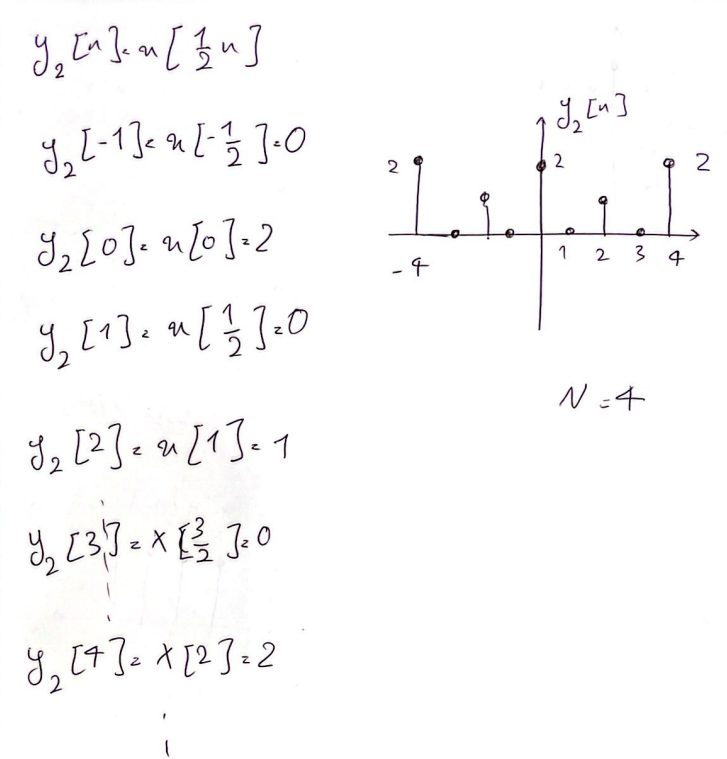 y₂[n] = x[½n]
y₂[-1] = x[-½] = 0
y₂[0] = x[0] = 2
y₂[1] = x[½] = 0
y₂[2] = x[1] = 1
y₂[3] = x[3/2] = 0
y₂[4] = x[2] = 2
y₂[n]
2 2 2
-4 1 2 3 4
N = 4